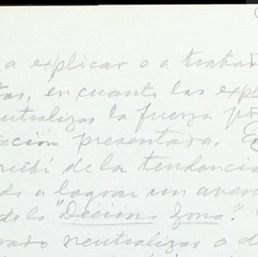 a explicar o a tratar
en cuanto las expl
neutralizar la fuerza po
presentara. E
recibí de la tendencia
a lograr un aven
de la "Decions Zona".
neutralizar o d